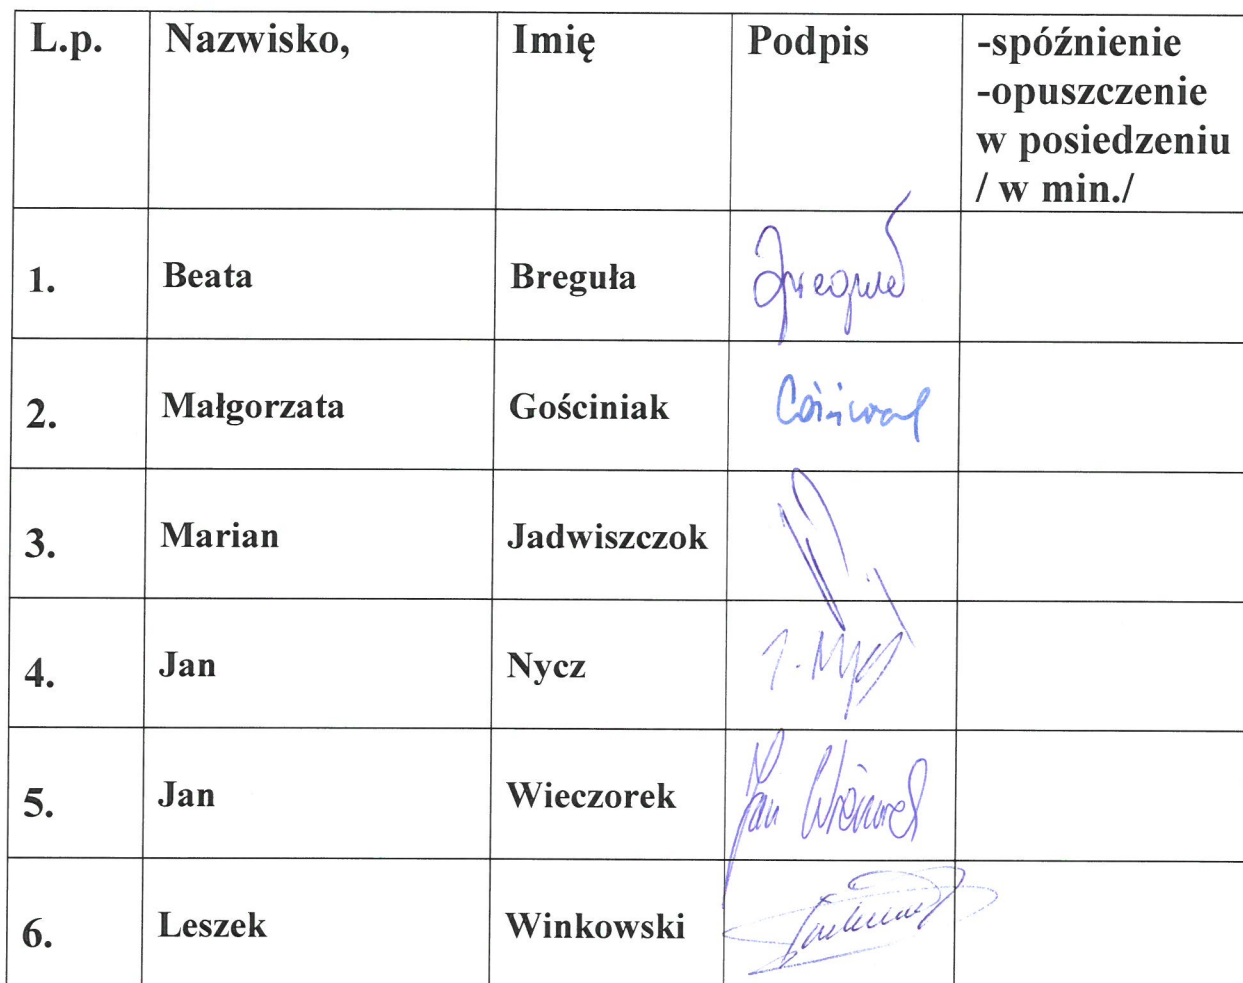 L.p. Nazwisko, Imię Podpis -spóźnienie
-opuszczenie
w posiedzeniu
/ w min./
1. Beata Breguła
2. Małgorzata Gościniak
3. Marian Jadwiszczok
4. Jan Nycz J. Nycz
5. Jan Wieczorek Jan Wieczorek
6. Leszek Winkowski